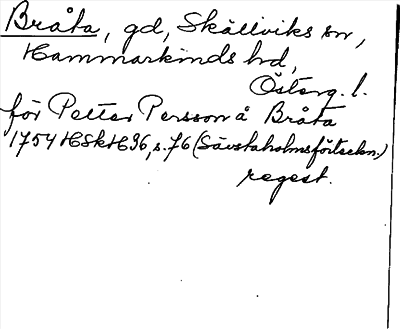 Bråta, gd, Skällviks sn,
Hammarkinds hd,
Österg. l.
för Petter Persson å Bråta
1754 HSkH 96, s. 76 (Sävstaholmsförteckn.)
regest.